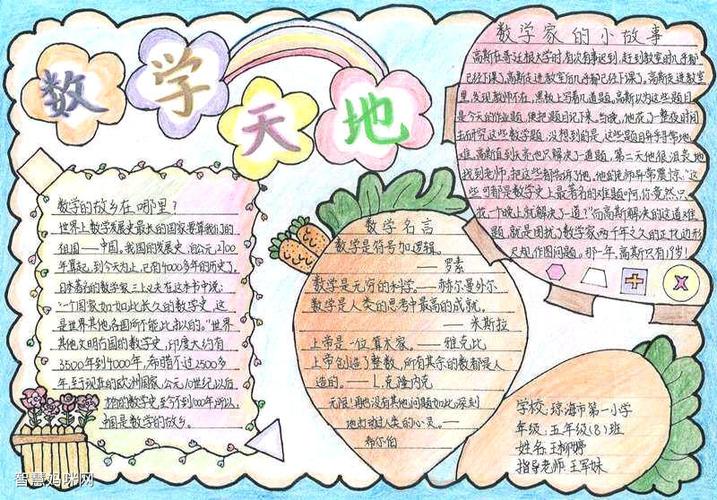 数学天地
数学家的小故事
高斯在哥廷根大学时,有次有事迟到,赶到教室时几乎都
已经下课了,高斯走进教室后几乎都已经下课了,高斯走进教室
里,发现教师不在,黑板上写着几道题,高斯以为这些题目
是今天的作业题,便把题目记下来,当晚,他花了整夜时间
去研究这些数学题,没想到的是,这些题目异乎寻常地
难,高斯直到天亮也只解决了一道题,第二天他很沮丧地
找到老师,把这些都告诉了他,他的老师异常震惊,“这
些可都是数学史上最著名的难题啊,你竟然只
花一个晚上就解决了一道?”而高斯解决的这道难
题,就是困扰了数学家两千年之久的正十七边形
尺规作图问题,那一年,高斯只有18岁!
数学的故乡在哪里?
世界上数学发展史最长的国家要算我们的
祖国——中国。我国的发展史,自公元前2700
年算起,到今天为止,已有4000多年的历史了。
日本著名的数学家三上义夫在这本书中说:
“一个国家如此长久的数学史,这
是世界其他各国所不能比拟的。”世界
其他文明古国的数学史,印度大约有
3500年到4000年,希腊不过2500多
年,至于现在的欧洲国家,公元10世纪以后
的数学史,至今不到1000年,所以
中国是数学的故乡。
数学名言
数学是符号加逻辑。
——罗素
数学是无穷的科学。——赫尔曼外尔
数学是人类的思考中最高的成就。
——米斯拉
上帝是一位算术家。——雅克比
上帝创造了整数,所有其余的数都是人
造的。——L.克隆内克
无限!再也没有其他问题如此深刻
地打动过人类的心灵。——
希尔伯
学校:琼海市第一小学
年级:五年级(8)班
姓名:王柳婷
指导老师:王军妹
智慧妈咪网